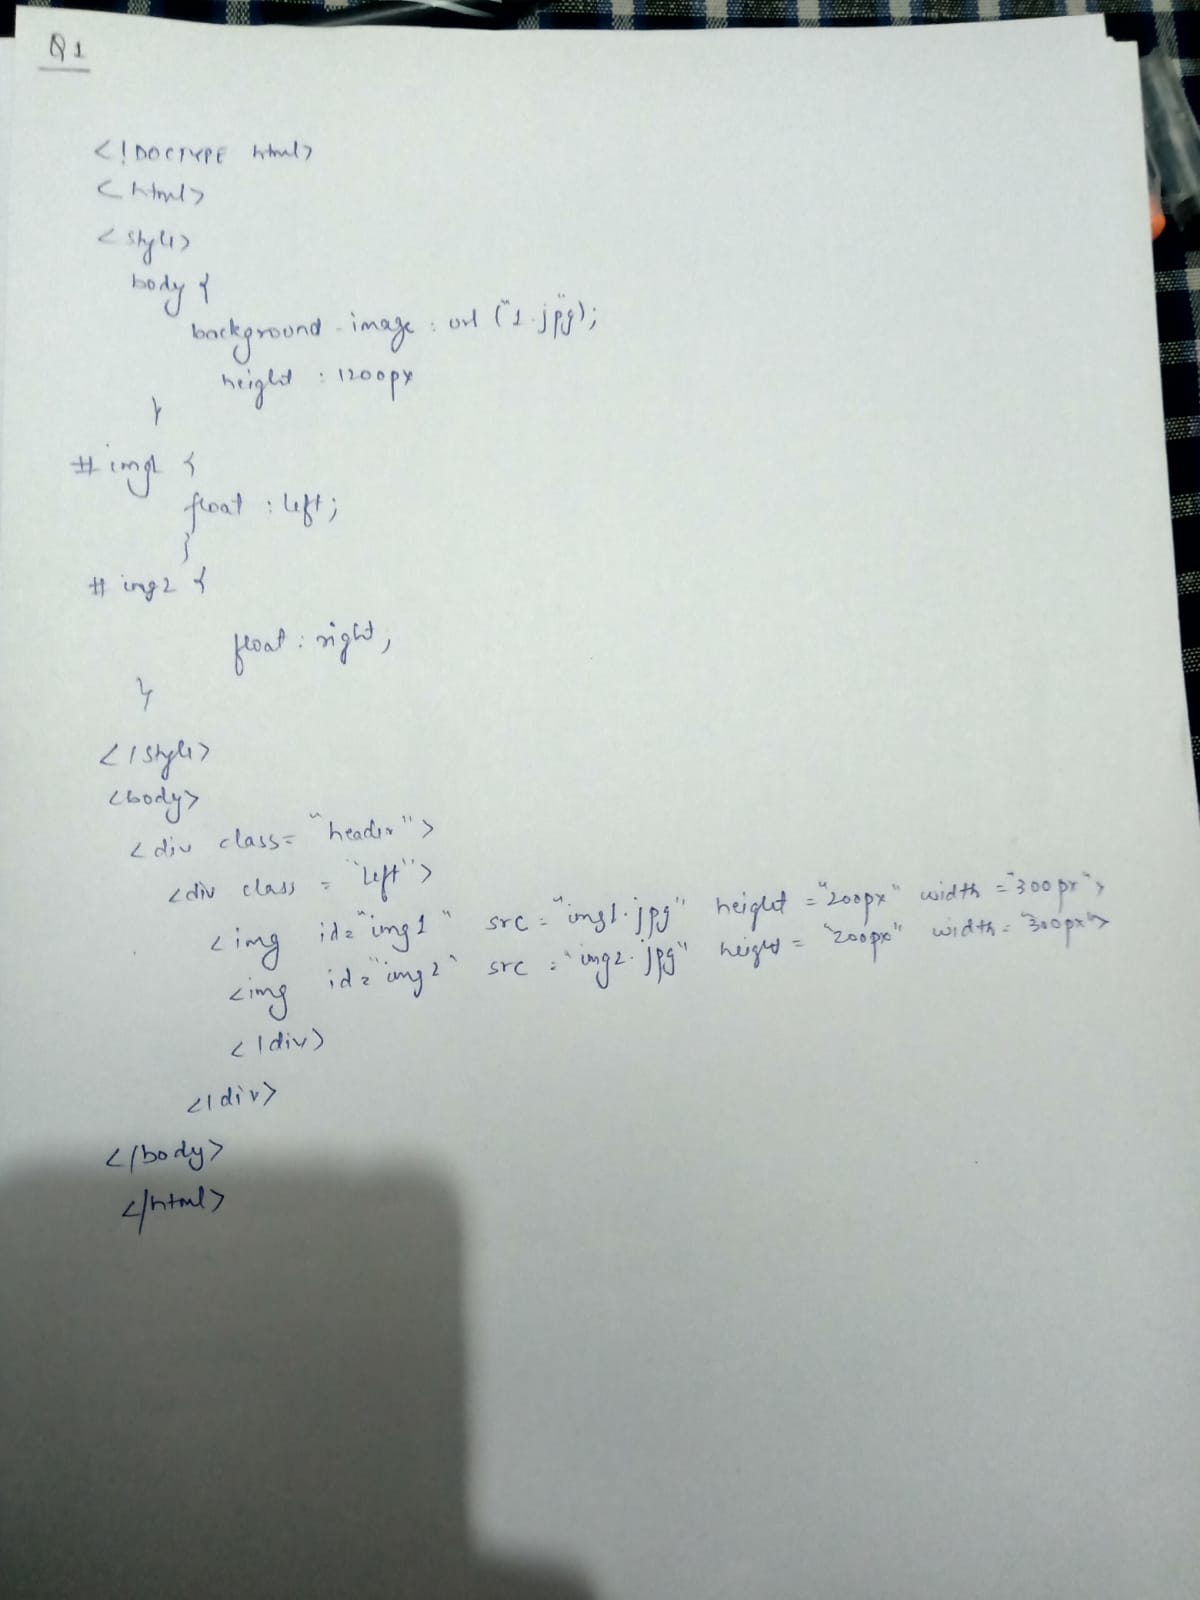 Q1
<!DOCTYPE html>
<html>
<style>
body {
background-image : url ("1.jpg");
height : 1200px
}
#img1 {
float : left;
}
#img2 {
float : right;
}
</style>
<body>
<div class="header">
<div class = "left">
<img id="img1" src="img1.jpg" height="200px" width="300px">
<img id="img2" src="img2.jpg" height="200px" width="300px">
</div>
</div>
</body>
</html>